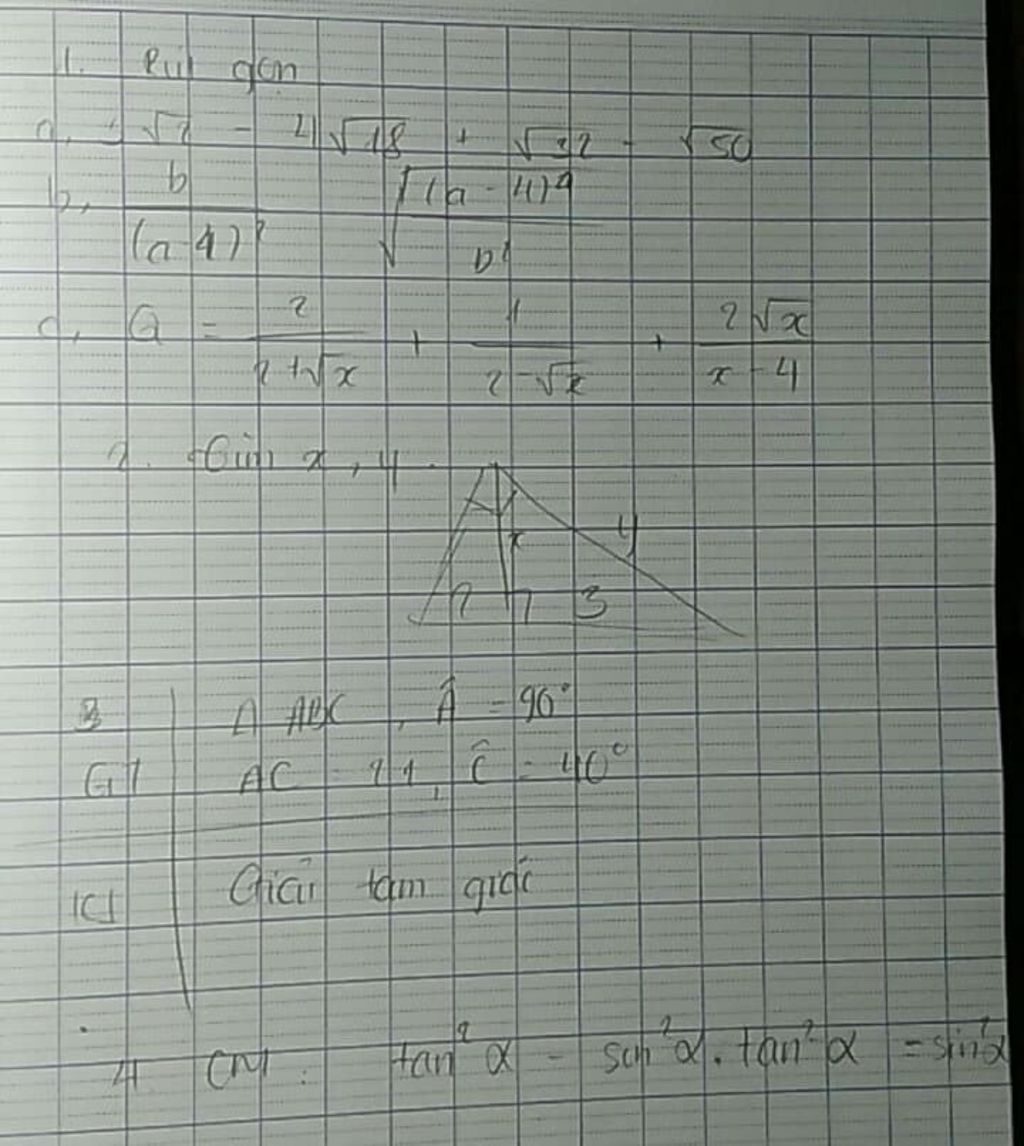 1. Rút gọn
a, √2 - 4√18 + √32 - √50
b, b/(a-4)² √((a-4)⁴/b²)
c, Q = 2/(2+√x) + 1/(2-√x) + 2√x/(x-4)
2. tìm x, y.
x y
2 3
3 Δ ABC, Â = 90°
GT AC = 21, Ĉ = 40°
KL Giải tam giác
4 CM: tan²α - sin²α. tan²α = sin²α